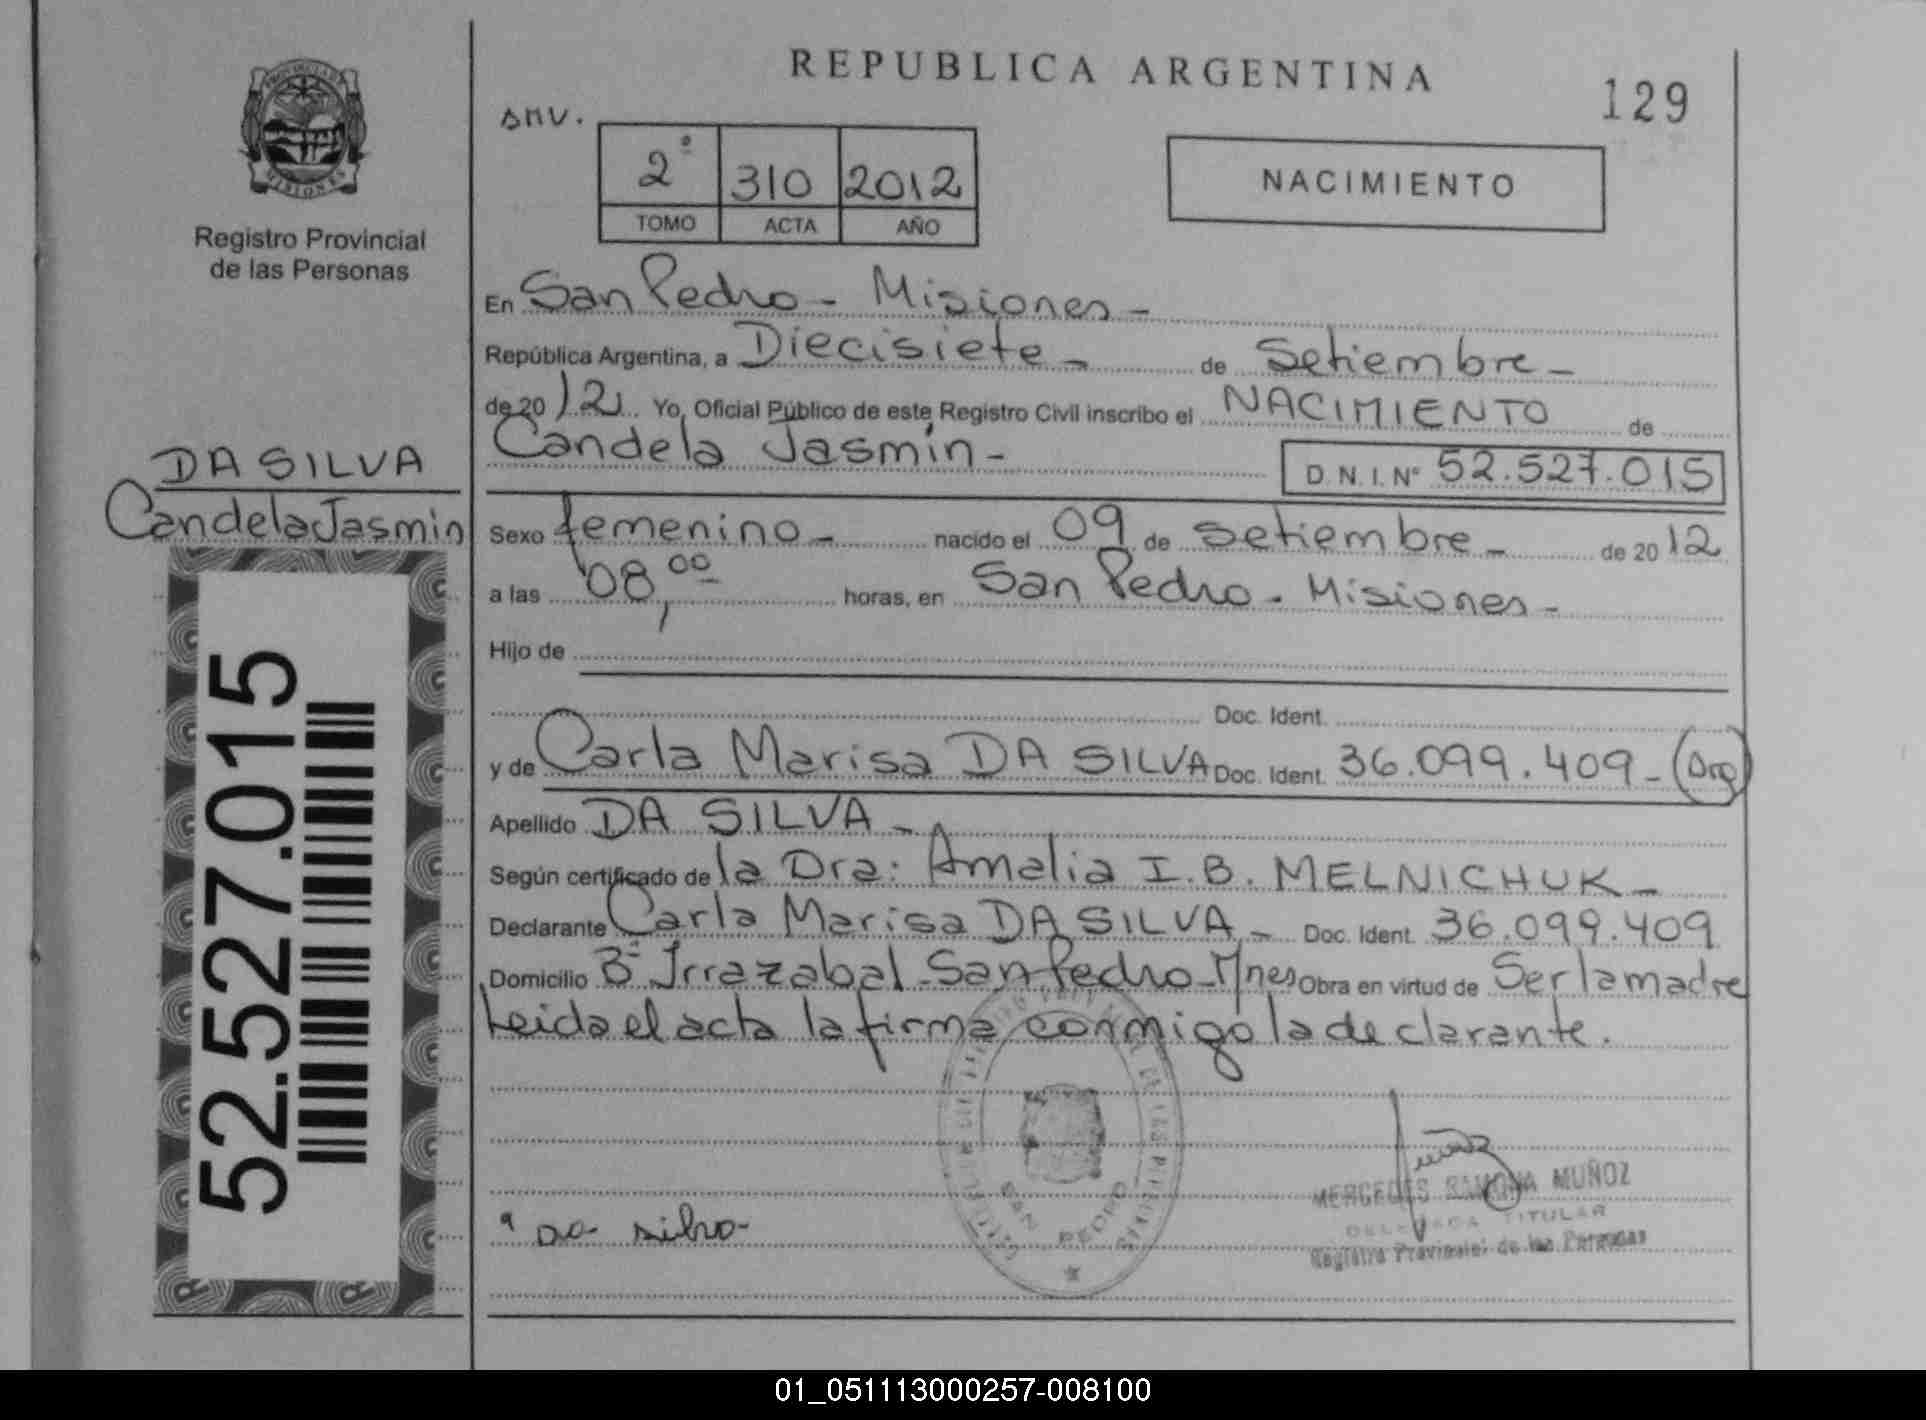 REPUBLICA ARGENTINA
129
PROVINCIA DE
MISIONES
Registro Provincial
de las Personas
2º 310 2012
TOMO ACTA AÑO
NACIMIENTO
En San Pedro - Misiones -
República Argentina, a Diecisiete - de Setiembre -
de 2012. Yo, Oficial Público de este Registro Civil inscribo el NACIMIENTO de
Candela Jasmín - D.N.I.Nº 52.527.015
DA SILVA
Candela Jasmin
52.527.015
Sexo femenino - nacido el 09 de setiembre - de 2012
a las 08,00 horas, en San Pedro - Misiones -
Hijo de
Doc. Ident.
y de Carla Marisa DA SILVA Doc. Ident. 36.099.409 - (Arg)
Apellido DA SILVA -
Según certificado de la Dra: Amalia I.B. MELNICHUK -
Declarante Carla Marisa DA SILVA - Doc. Ident. 36.099.409
Domicilio Bº Irrazabal - San Pedro - Mnes Obra en virtud de Ser la madre
Leida el acta la firma conmigo la declarante.
SAN PEDRO
MERCEDES RAMONA MUÑOZ
DELEGADA TITULAR
Registro Provincial de las Personas
Da silva
01_051113000257-008100